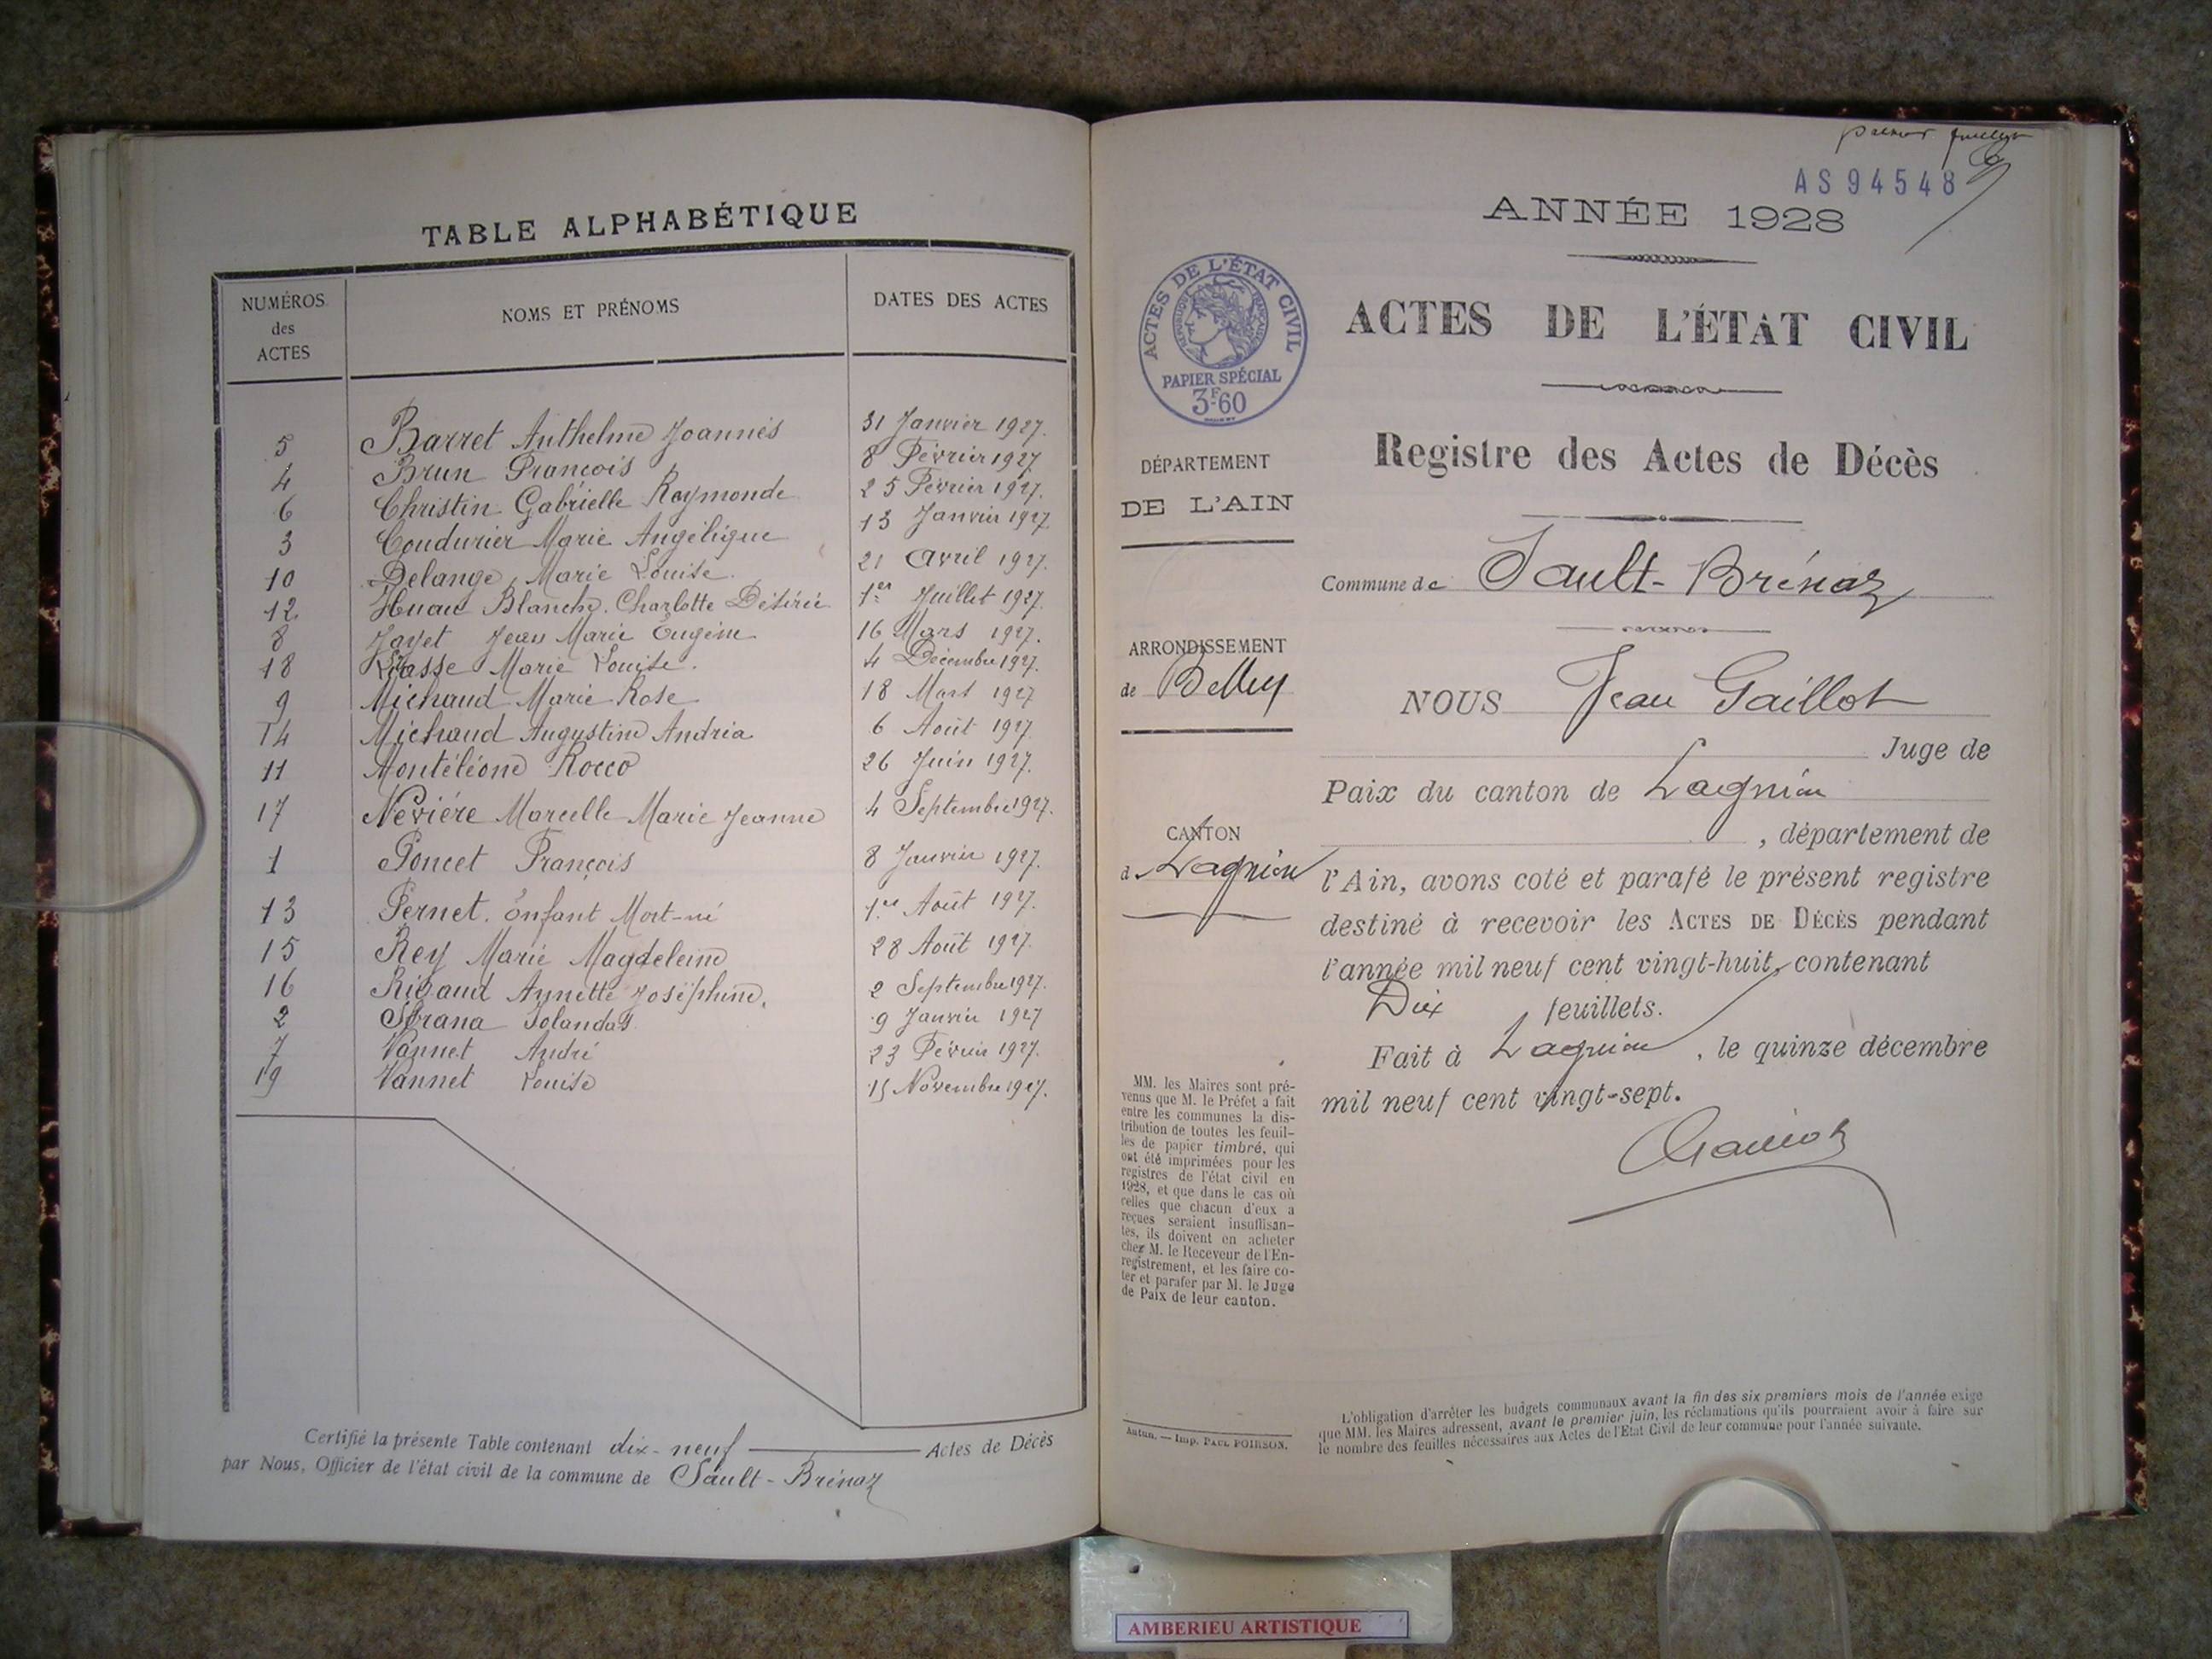 TABLE ALPHABÉTIQUE
NUMÉROS des ACTES NOMS ET PRÉNOMS DATES DES ACTES
5 Barret Anthelme Joannès 31 Janvier 1927.
4 Brun François 8 Février 1927
6 Christin Gabrielle Raymonde 25 Février 1927.
3 Coudurier Marie Angélique 13 Janvier 1927
10 Delange, Marie Louise. 21 Avril 1927.
12 Huau Blanche. Charlotte Désirée 1er Juillet 1927.
8 Jayet Jean Marie Eugène 16 Mars 1927.
18 Marie Louise. 4 Décembre 1927.
9 Michaud Marie Rose 18 Mars 1927
14 Michaud Augustine Andria 6 Août 1927.
11 Montéléone Rocco 26 Juin 1927.
17 Nevière Marcelle Marie Jeanne 4 Septembre 1927.
1 Poncet François 8 Janvier 1927.
13 Pernet. Enfant Mort-né 1er Août 1927.
15 Rey Marie Magdeleine 28 Août 1927.
16 Rigaud Annette Joséphine. 2 Septembre 1927.
2 Iolanda 9 Janvier 1927
7 Vannet André 23 Février 1927.
19 Vannet Louise 15 Novembre 1927.
Certifié la présente Table contenant dix-neuf Actes de Décès
par Nous, Officier de l'état civil de la commune de Sault-Brénaz
premier feuillet
AS94548
ANNÉE 1928
ACTES DE L'ÉTAT CIVIL
RÉPUBLIQUE FRANÇAISE
PAPIER SPÉCIAL
3F60
ACTES DE L'ÉTAT CIVIL
Registre des Actes de Décès
DÉPARTEMENT
DE L'AIN
Commune de Sault-Brénaz
ARRONDISSEMENT
de Belley
CANTON
d Lagnieu
NOUS Jean Gaillot
Juge de
Paix du canton de Lagnieu
, département de
l'Ain, avons coté et parafé le présent registre
destiné à recevoir les ACTES DE DÉCÈS pendant
l'année mil neuf cent vingt-huit, contenant
Dix feuillets.
Fait à Lagnieu, le quinze décembre
mil neuf cent vingt-sept.
MM. les Maires sont pré-
venus que M. le Préfet a fait
entre les communes la dis-
tribution de toutes les feuil-
les de papier timbré, qui
ont été imprimées pour les
registres de l'état civil en
1928, et que dans le cas où
celles que chacun d'eux a
reçues seraient insuffisan-
tes, ils doivent en acheter
chez M. le Receveur de l'En-
registrement, et les faire co-
ter et parafer par M. le Juge
de Paix de leur canton.
Autun. — Imp. PAUL POIRSON.
L'obligation d'arrêter les budgets communaux avant la fin des six premiers mois de l'année exige
que MM. les Maires adressent, avant le premier juin, les réclamations qu'ils pourraient avoir à faire sur
le nombre des feuilles nécessaires aux Actes de l'Etat Civil de leur commune pour l'année suivante.
AMBERIEU ARTISTIQUE